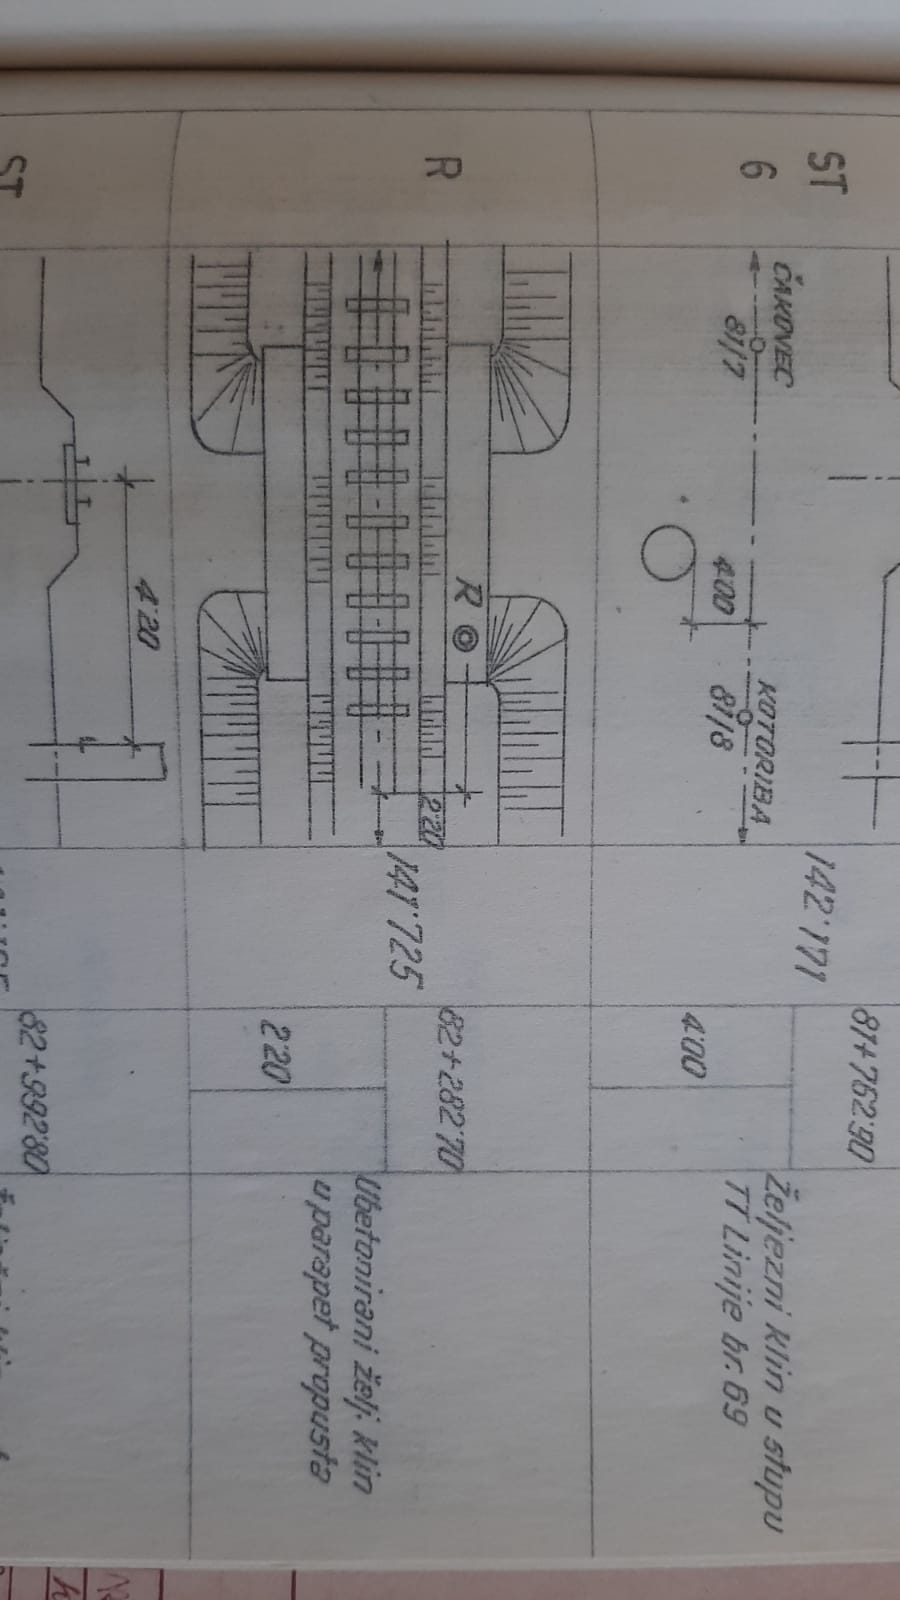 ST
6
ČAKOVEC
81/7
4·00
KOTORIBA
81/8
142·171
81+762·90
4·00
Željezni klin u stupu
TT Linije br. 69
R
R
2·20
141·725
82+282·70
2·20
Ubetonirani želj. klin
u parapet propusta
4·20
ST
82+992·80